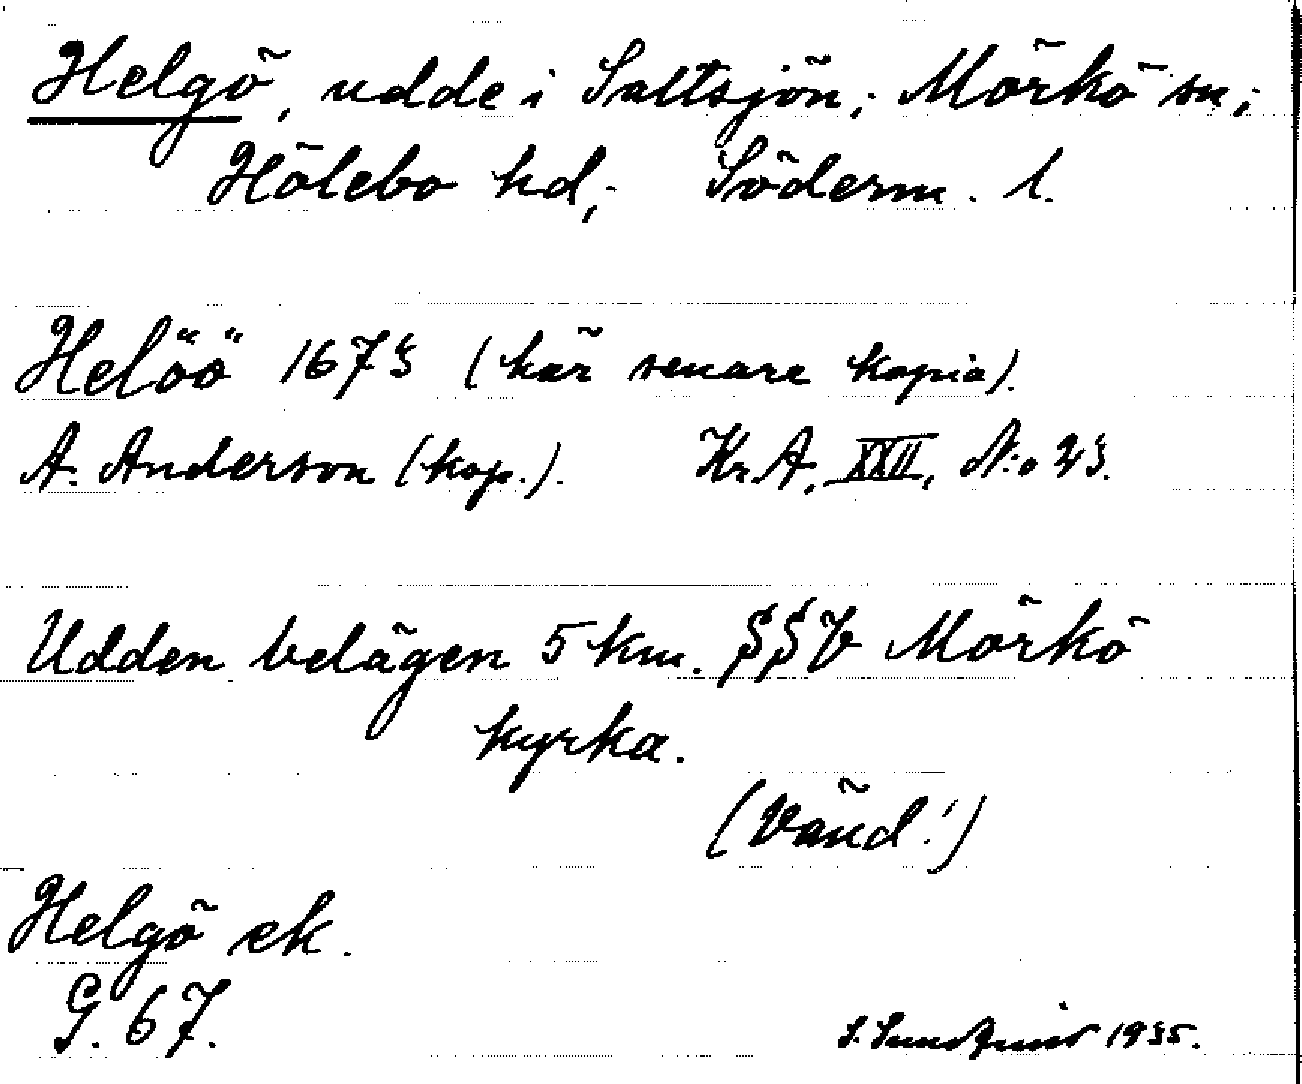 Helgö, udde i Saltsjön; Mörkö sn;
Hölebo hd; Söderm. l.
Helöö 1673 (här senare kopia).
A. Anderson (kop.). Kr. A. XXII, N:o 23.
Udden belägen 5 km. SSV Mörkö
kyrka.
(Vänd!)
Helgö ek.
G. 67.
S. Sundquist 1935.